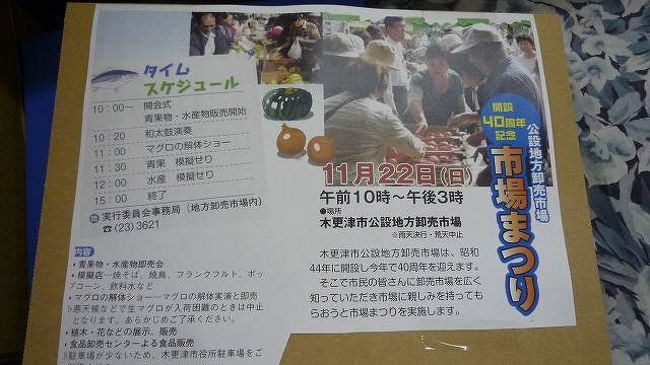 タイム
スケジュール
10:00~ 開会式
青果物・水産物販売開始
10:20 和太鼓演奏
11:00 マグロの解体ショー
11:30 青果 模擬せり
12:00 水産 模擬せり
15:00 終了
実行委員会事務局(地方卸売市場内)
(23)3621
内容
・青果物・水産物即売会
・模擬店…焼そば、焼鳥、フランクフルト、ポッ
プコーン、飲料水など
・マグロの解体ショー…マグロの解体実演と即売
※悪天候などで生マグロが入荷困難のときは中止
となります。あらかじめご了承ください。
・植木・花などの展示、販売
・食品卸売センターよる食品販売
※駐車場が少ないため、木更津市役所駐車場をご
開設
40周年
記念
公設地方卸売市場
市場まつり
11月22日(日)
午前10時~午後3時
●場所
木更津市公設地方卸売市場
※雨天決行・荒天中止
木更津市公設地方卸売市場は、昭和
44年に開設し今年で40周年を迎えます。
そこで市民の皆さんに卸売市場を広く
知っていただき市場に親しみを持っても
らおうと市場まつりを実施します。